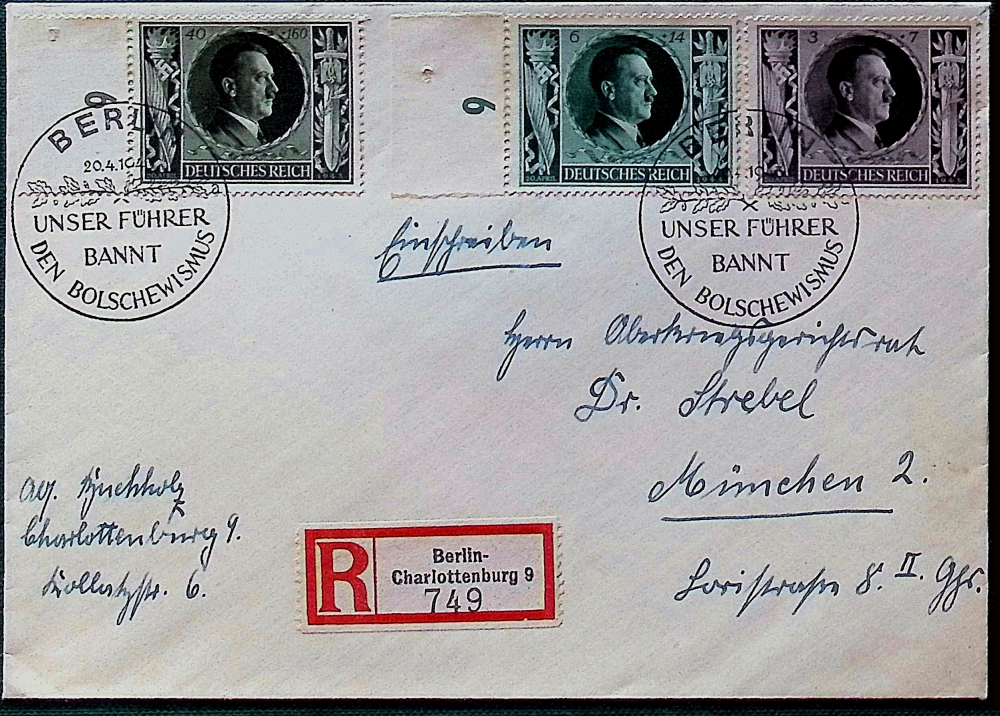 40 +160
DEUTSCHES REICH
6 +14
DEUTSCHES REICH
3 +7
DEUTSCHES REICH
6
6
BERLIN
20.4.194
a
UNSER FÜHRER
BANNT
DEN BOLSCHEWISMUS
UNSER FÜHRER
BANNT
DEN BOLSCHEWISMUS
Einschreiben
Herrn Oberkriegsgerichtsrat
Dr. Strebel
München 2.
Loristraße 8. II. Ggs.
Buchholz
Charlottenburg 9.
Kollatzstr. 6.
R
Berlin-
Charlottenburg 9
749